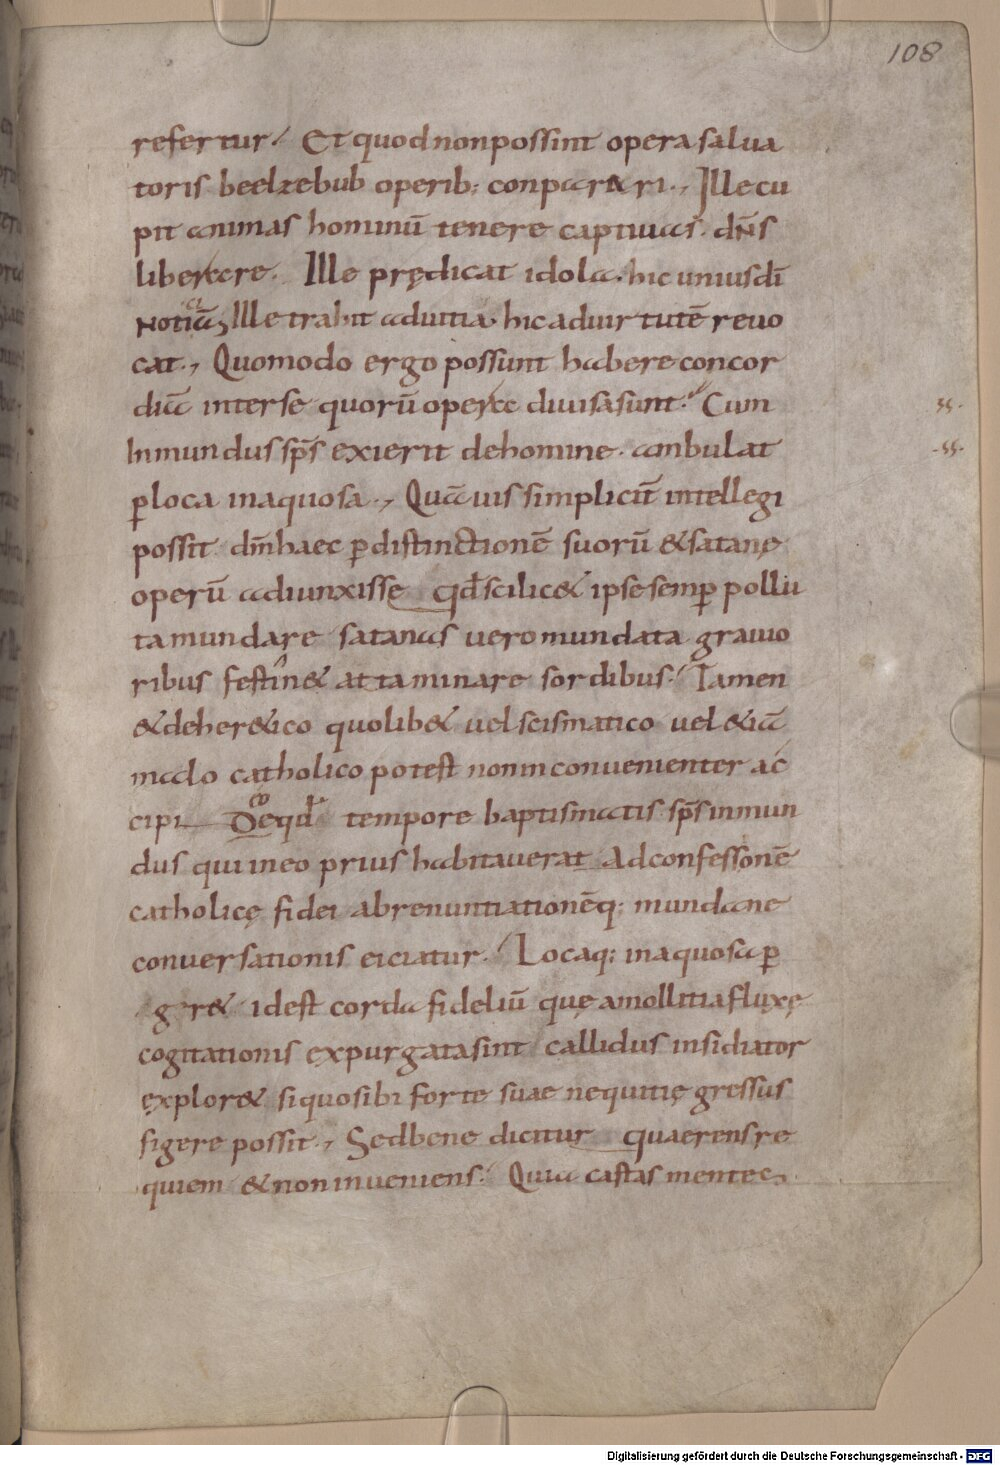 108
refertur. Et quod non possint opera salua
toris beelzebub operib; conparari. Ille cu
pit animas hominū tenere captiuas. dn̄s
liberare. Ille prędicat idola. hic unius dī
notiā; Ille trahit ad uitia. hic ad uirtutē reuo
cat. Quomodo ergo possunt habere concor
diā inter se quorū opera diuisa sunt. Cum
Inmundus sp̄s exierit de homine. ambulat
ꝑ loca inaquosa. Quāuis simpliciт̄ intellegi
possit dn̄m haec ꝑ distinctionē suorū & satanę
operū adiunxisse qđ scilic& ipse semꝑ pollu
ta mundare satanas uero mundata grauio
ribus festin& attaminare sordibus. Tamen
& de her&ico quolib& uel scismatico uel &iā
malo catholico potest non inconuenienter ac
cipi tempore baptismatis sp̄s inmun
dus qui in eo prius habitauerat Ad confessionē
catholicę fidei abrenuntiationēq; mundane
conuersationis eiciatur. Locaq; inaquosa ꝑ
ger& id est corda fideliū quę a mollitia fluxę
cogitationis expurgata sint callidus insidiator
explor& si quos ibi forte suae nequitię gressus
figere possit. Sed bene dicitur quaerens re
quiem & non inueniens. Quia castas mentes
Digitalisierung gefördert durch die Deutsche Forschungsgemeinschaft - DFG